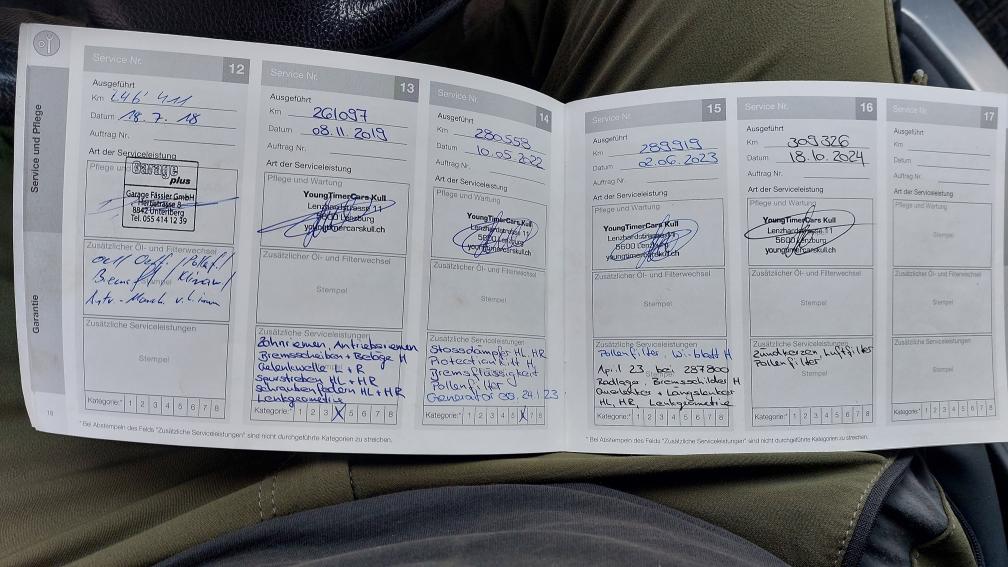 Service und Pflege
Garantie
18
Service Nr. 12
Ausgeführt
Km 246'411
Datum 18.7.18
Auftrag Nr.
Art der Serviceleistung
Pflege und
Garage
plus
Garage Fässler GmbH
8842 Unteriberg
Tel. 055 414 12 39
Zusätzlicher Öl- und Filterwechsel
Stempel
Zusätzliche Serviceleistungen
Stempel
Kategorie:* 1 2 3 4 5 6 7 8
Service Nr. 13
Ausgeführt
Km 261097
Datum 08.11.2019
Auftrag Nr.
Art der Serviceleistung
Pflege und Wartung
YoungTimerCars Kull
Lenzhardstrasse 11
5600 Lenzburg
youngtimercarskull.ch
Zusätzlicher Öl- und Filterwechsel
Stempel
Zusätzliche Serviceleistungen
Zahnriemen, Antriebsriemen
Bremsscheiben + Beläge H
Gelenkwelle L + R
Spurstreben HL + HR
Schraubenfedern HL + HR
Lenkgeometrie
Kategorie:* 1 2 3 X 5 6 7 8
Service Nr. 14
Ausgeführt
Km 280558
Datum 10.05.2022
Auftrag Nr.
Art der Serviceleistung
Pflege und Wartung
YoungTimerCars Kull
Lenzhardstrasse 11
5600 Lenzburg
youngtimercarskull.ch
Zusätzlicher Öl- und Filterwechsel
Stempel
Zusätzliche Serviceleistungen
Stossdämpfer HL, HR
Protectionkitt H
Bremsflüssigkeit
Pollenfilter
Generator
Kategorie:* 1 2 3 4 5 X 7 8
* Bei Abstempeln des Felds "Zusätzliche Serviceleistungen" sind nicht durchgeführte Kategorien zu streichen.
Service Nr. 15
Ausgeführt
Km 289919
Datum 02.06.2023
Auftrag Nr.
Art der Serviceleistung
Pflege und Wartung
YoungTimerCars Kull
Lenzhardstrasse 11
5600 Lenzburg
youngtimercarskull.ch
Zusätzlicher Öl- und Filterwechsel
Stempel
Zusätzliche Serviceleistungen
Pollenfilter, Wi-blatt H
April 23 bei 287800
Radlager, Bremsschilder H
Querlenker + Längslenker
HL, HR, Lenkgeometrie
Kategorie:* 1 2 3 4 5 6 7 8
Service Nr. 16
Ausgeführt
Km 309326
Datum 18.10.2024
Auftrag Nr.
Art der Serviceleistung
Pflege und Wartung
YoungTimerCars Kull
Lenzhardstrasse 11
5600 Lenzburg
youngtimercarskull.ch
Zusätzlicher Öl- und Filterwechsel
Stempel
Zusätzliche Serviceleistungen
Zündkerzen, Luftfilter
Pollenfilter
Kategorie:* 1 2 3 4 5 6 7 8
Service Nr. 17
Ausgeführt
Km
Datum
Auftrag Nr.
Art der Serviceleistung
Pflege und Wartung
Stempel
Zusätzlicher Öl- und Filterwechsel
Stempel
Zusätzliche Serviceleistungen
Stempel
Kategorie:* 1 2 3 4 5 6 7 8
* Bei Abstempeln des Felds "Zusätzliche Serviceleistungen" sind nicht durchgeführte Kategorien zu streichen.